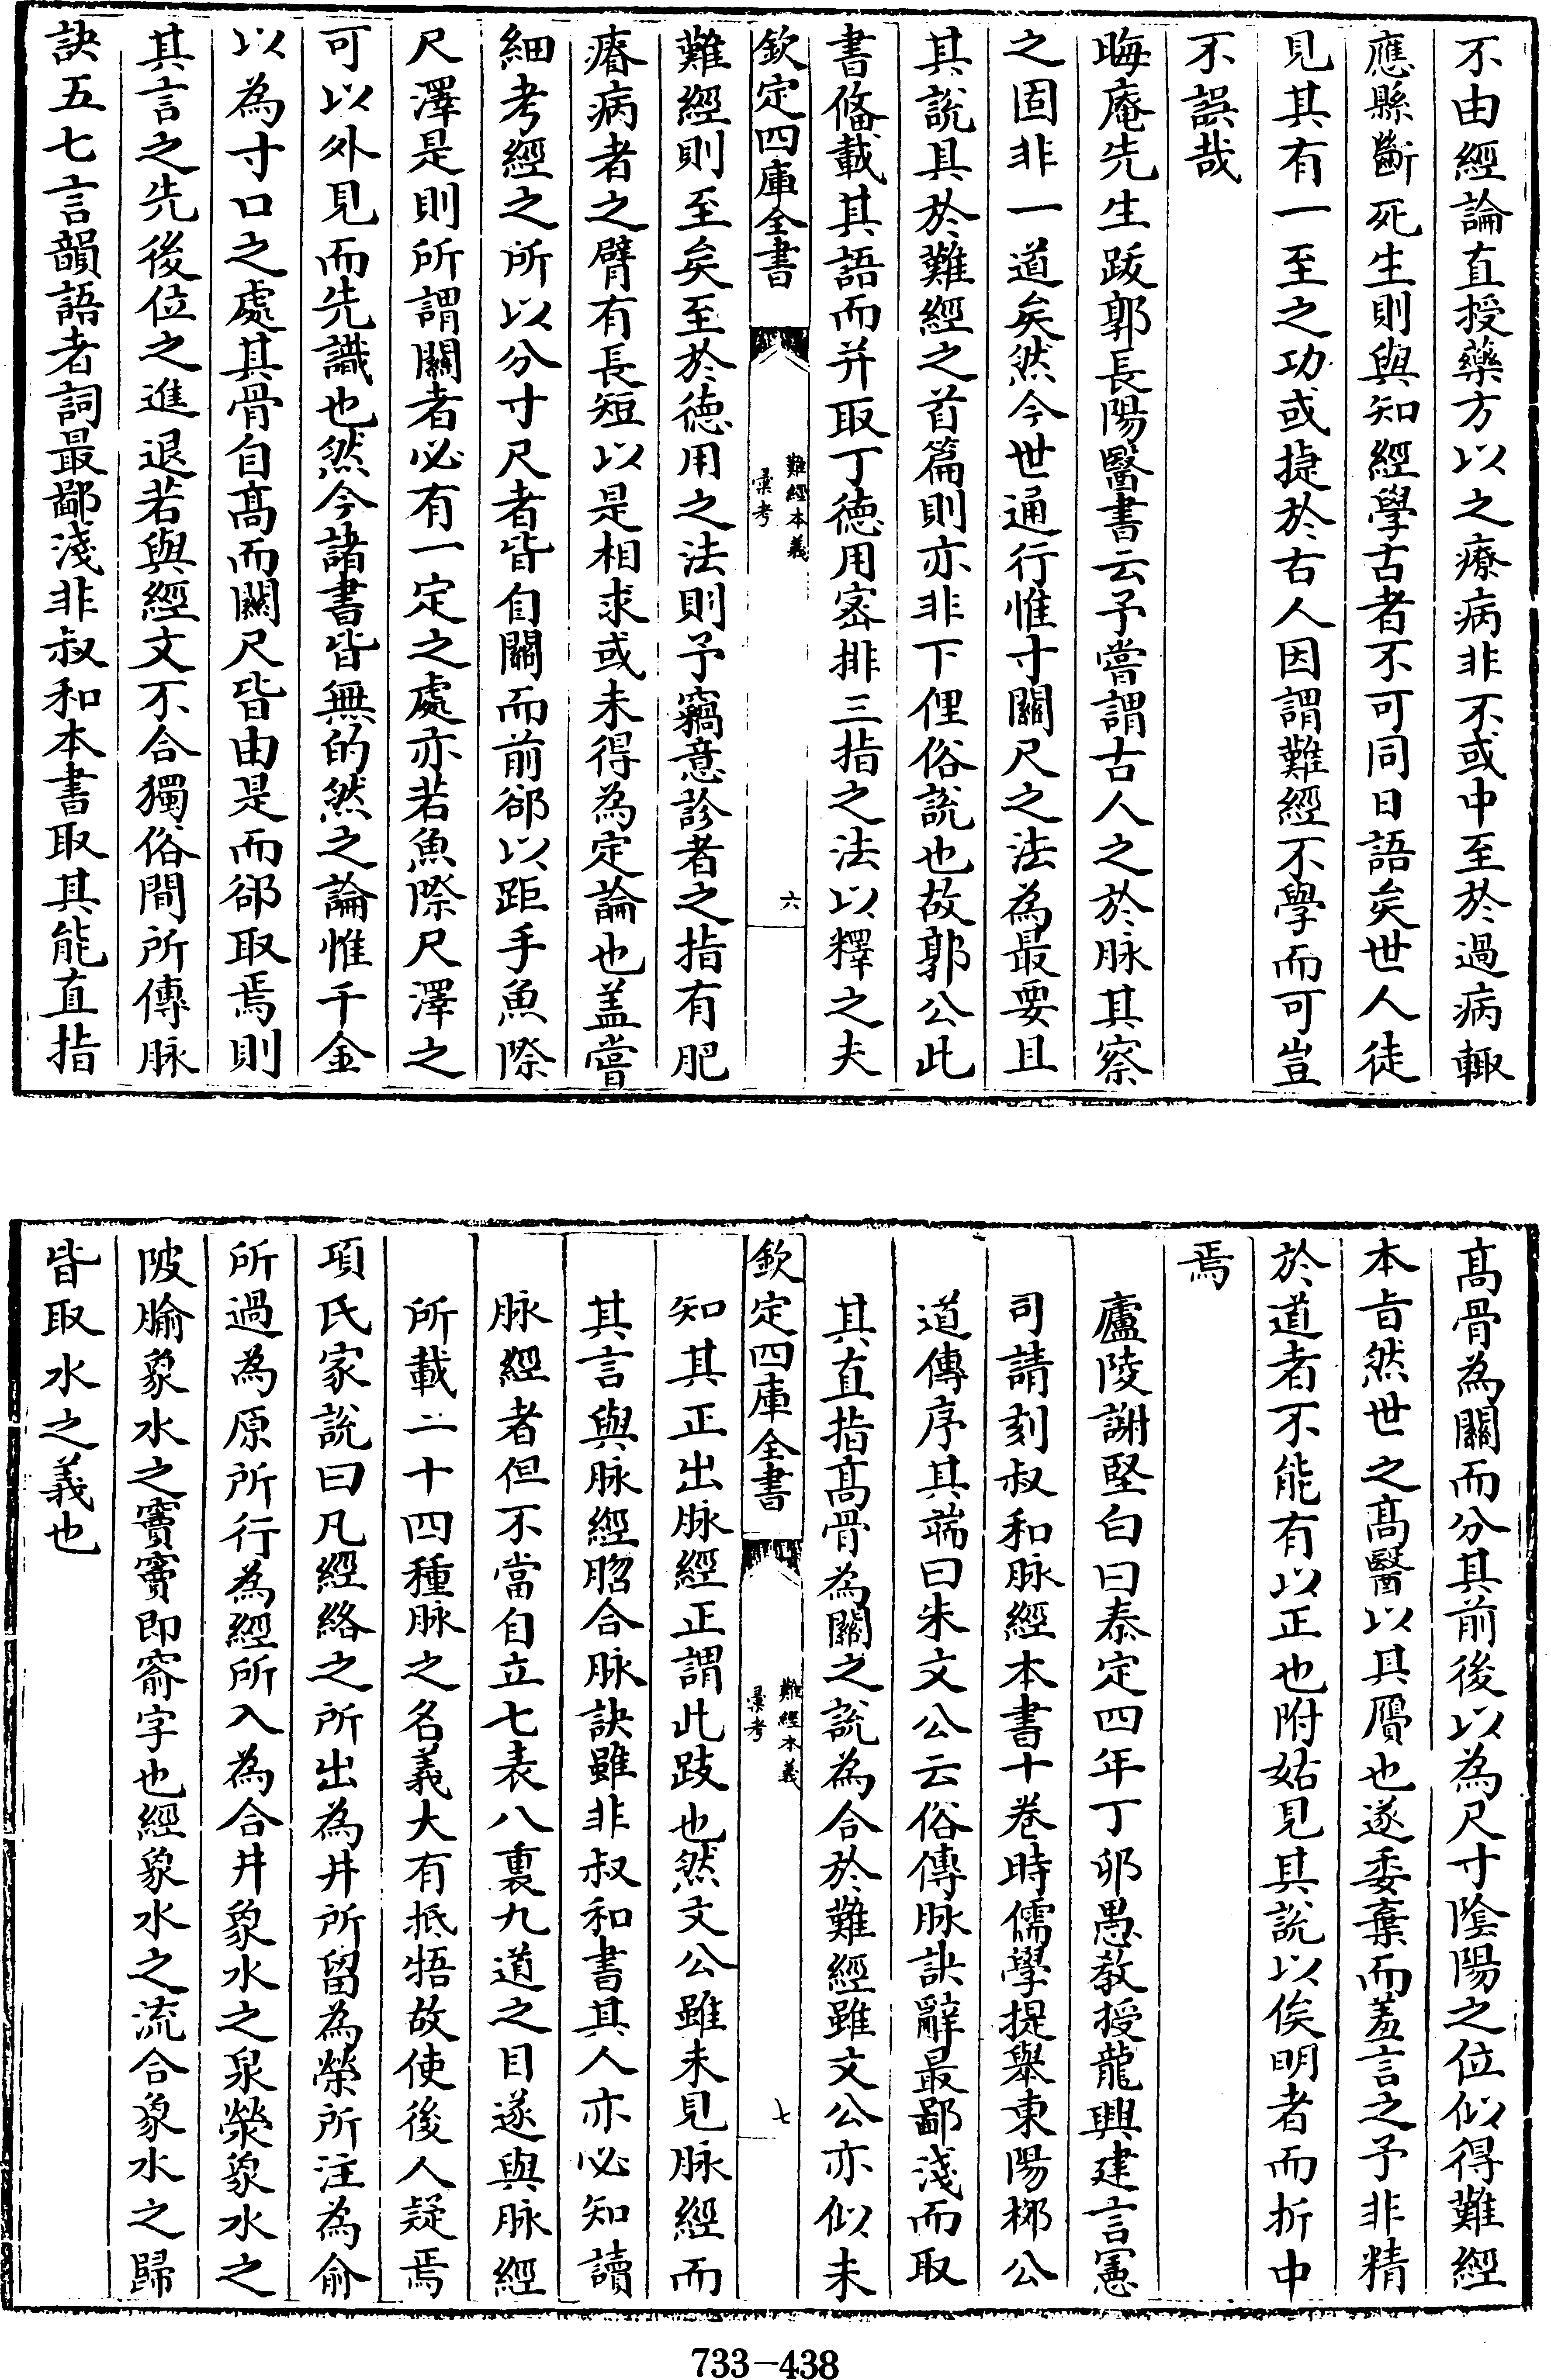 不由經論直授藥方以之療病非不或中至於過病輙
應縣斷死生則與知經學古者不可同日語矣世人徒
見其有一至之功或捷於古人因謂難經不學而可豈
不誤哉
晦庵先生跋郭長陽醫書云予嘗謂古人之於脉其察
之固非一道矣然今世通行惟寸關尺之法為最要且
其說具於難經之首篇則亦非下俚俗說也故郭公此
書俻載其語而并取丁徳用宻排三指之法以釋之夫
欽定四庫全書
難經本義
彚考
六
難經則至矣至於徳用之法則予竊意診者之指有肥
瘠病者之臂有長短以是相求或未得為定論也盖嘗
細考經之所以分寸尺者皆自關而前郤以距手魚際
尺澤是則所謂關者必有一定之處亦若魚際尺澤之
可以外見而先識也然今諸書皆無的然之論惟千金
以為寸口之處其骨自髙而關尺皆由是而郤取焉則
其言之先後位之進退若與經文不合獨俗間所傳脉
訣五七言韻語者詞最鄙淺非叔和本書取其能直指
髙骨為關而分其前後以為尺寸陰陽之位似得難經
本旨然世之髙醫以其贋也遂委棄而羞言之予非精
於道者不能有以正也附姑見其說以俟明者而折中
焉
廬陵謝堅白曰泰定四年丁卯愚教授龍興建言憲
司請刻叔和脉經本書十卷時儒學提舉東陽栁公
道傳序其端曰朱文公云俗傳脉訣辭最鄙淺而取
其直指髙骨為關之說為合於難經雖文公亦似未
欽定四庫全書
難經本義
彚考
七
知其正出脉經正謂此跂也然文公雖未見脉經而
其言與脉經脗合脉訣雖非叔和書其人亦必知讀
脉經者但不當自立七表八裏九道之目遂與脉經
所載二十四種脉之名義大有抵牾故使後人疑焉
項氏家說曰凡經絡之所出為井所留為榮所注為俞
所過為原所行為經所入為合井象水之泉滎象水之
陂腧象水之竇竇即窬字也經象水之流合象水之歸
皆取水之義也
733-438